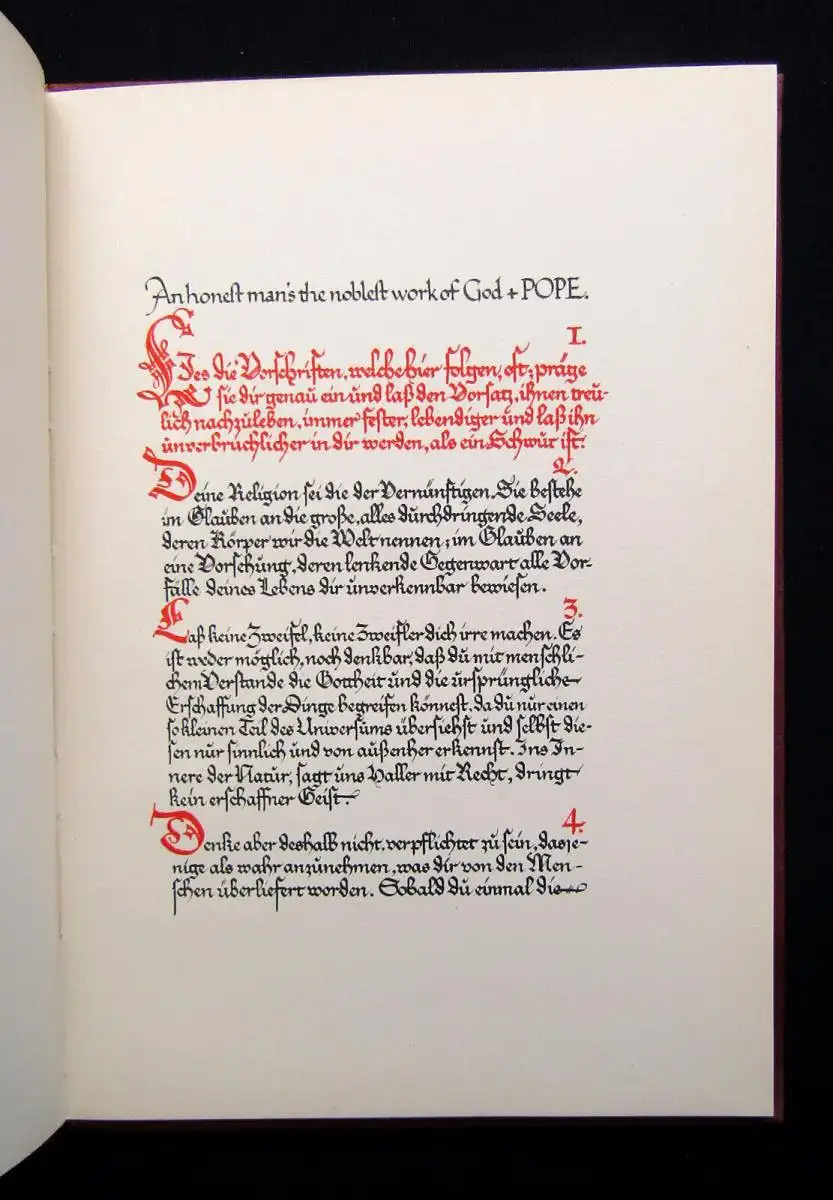 An honest man's the noblest work of God + POPE.
1.
Lies die Vorschriften, welche hier folgen, oft; präge
sie dir genau ein und laß den Vorsatz, ihnen treu-
lich nachzuleben, immer fester, lebendiger und laß ihn
unverbrüchlicher in dir werden, als ein Schwur ist.
2.
Deine Religion sei die der Vernünftigen. Sie bestehe
im Glauben an die große, alles durchdringende Seele,
deren Körper wir die Welt nennen; im Glauben an
eine Vorsehung, deren lenkende Gegenwart alle Vor-
fälle deines Lebens dir unverkennbar bewiesen.
3.
Laß keine Zweifel, keine Zweifler dich irre machen. Es
ist weder möglich, noch denkbar, daß du mit menschli-
chem Verstande die Gottheit und die ursprüngliche
Erschaffung der Dinge begreifen könnest, da du nur einen
so kleinen Teil des Universums übersiehst und selbst die-
sen nur sinnlich und von außenher erkennst. Ins In-
nere der Natur, sagt uns Haller mit Recht, dringt
kein erschaffner Geist.
4.
Denke aber deshalb nicht, verpflichtet zu sein, dasje-
nige als wahr anzunehmen, was dir von den Men-
schen überliefert worden. Sobald du einmal die